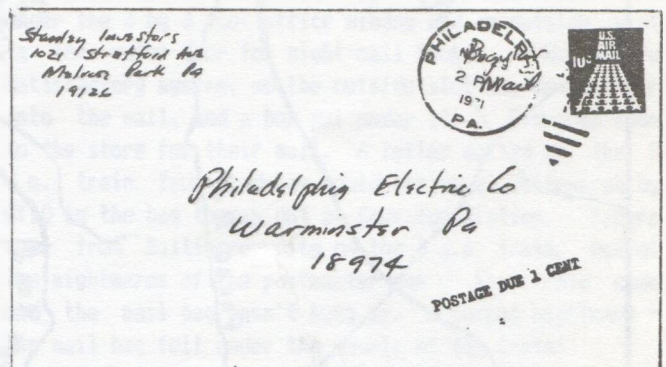 Standey Investors
1021 Stratford Ave
Melrose Park Pa
19126
PHILADELPHIA
2 PM
1971
PA.
Mail
U.S.
AIR
MAIL
10c
Philadelphia Electric Co
Warminster Pa
18974
POSTAGE DUE 1 CENT